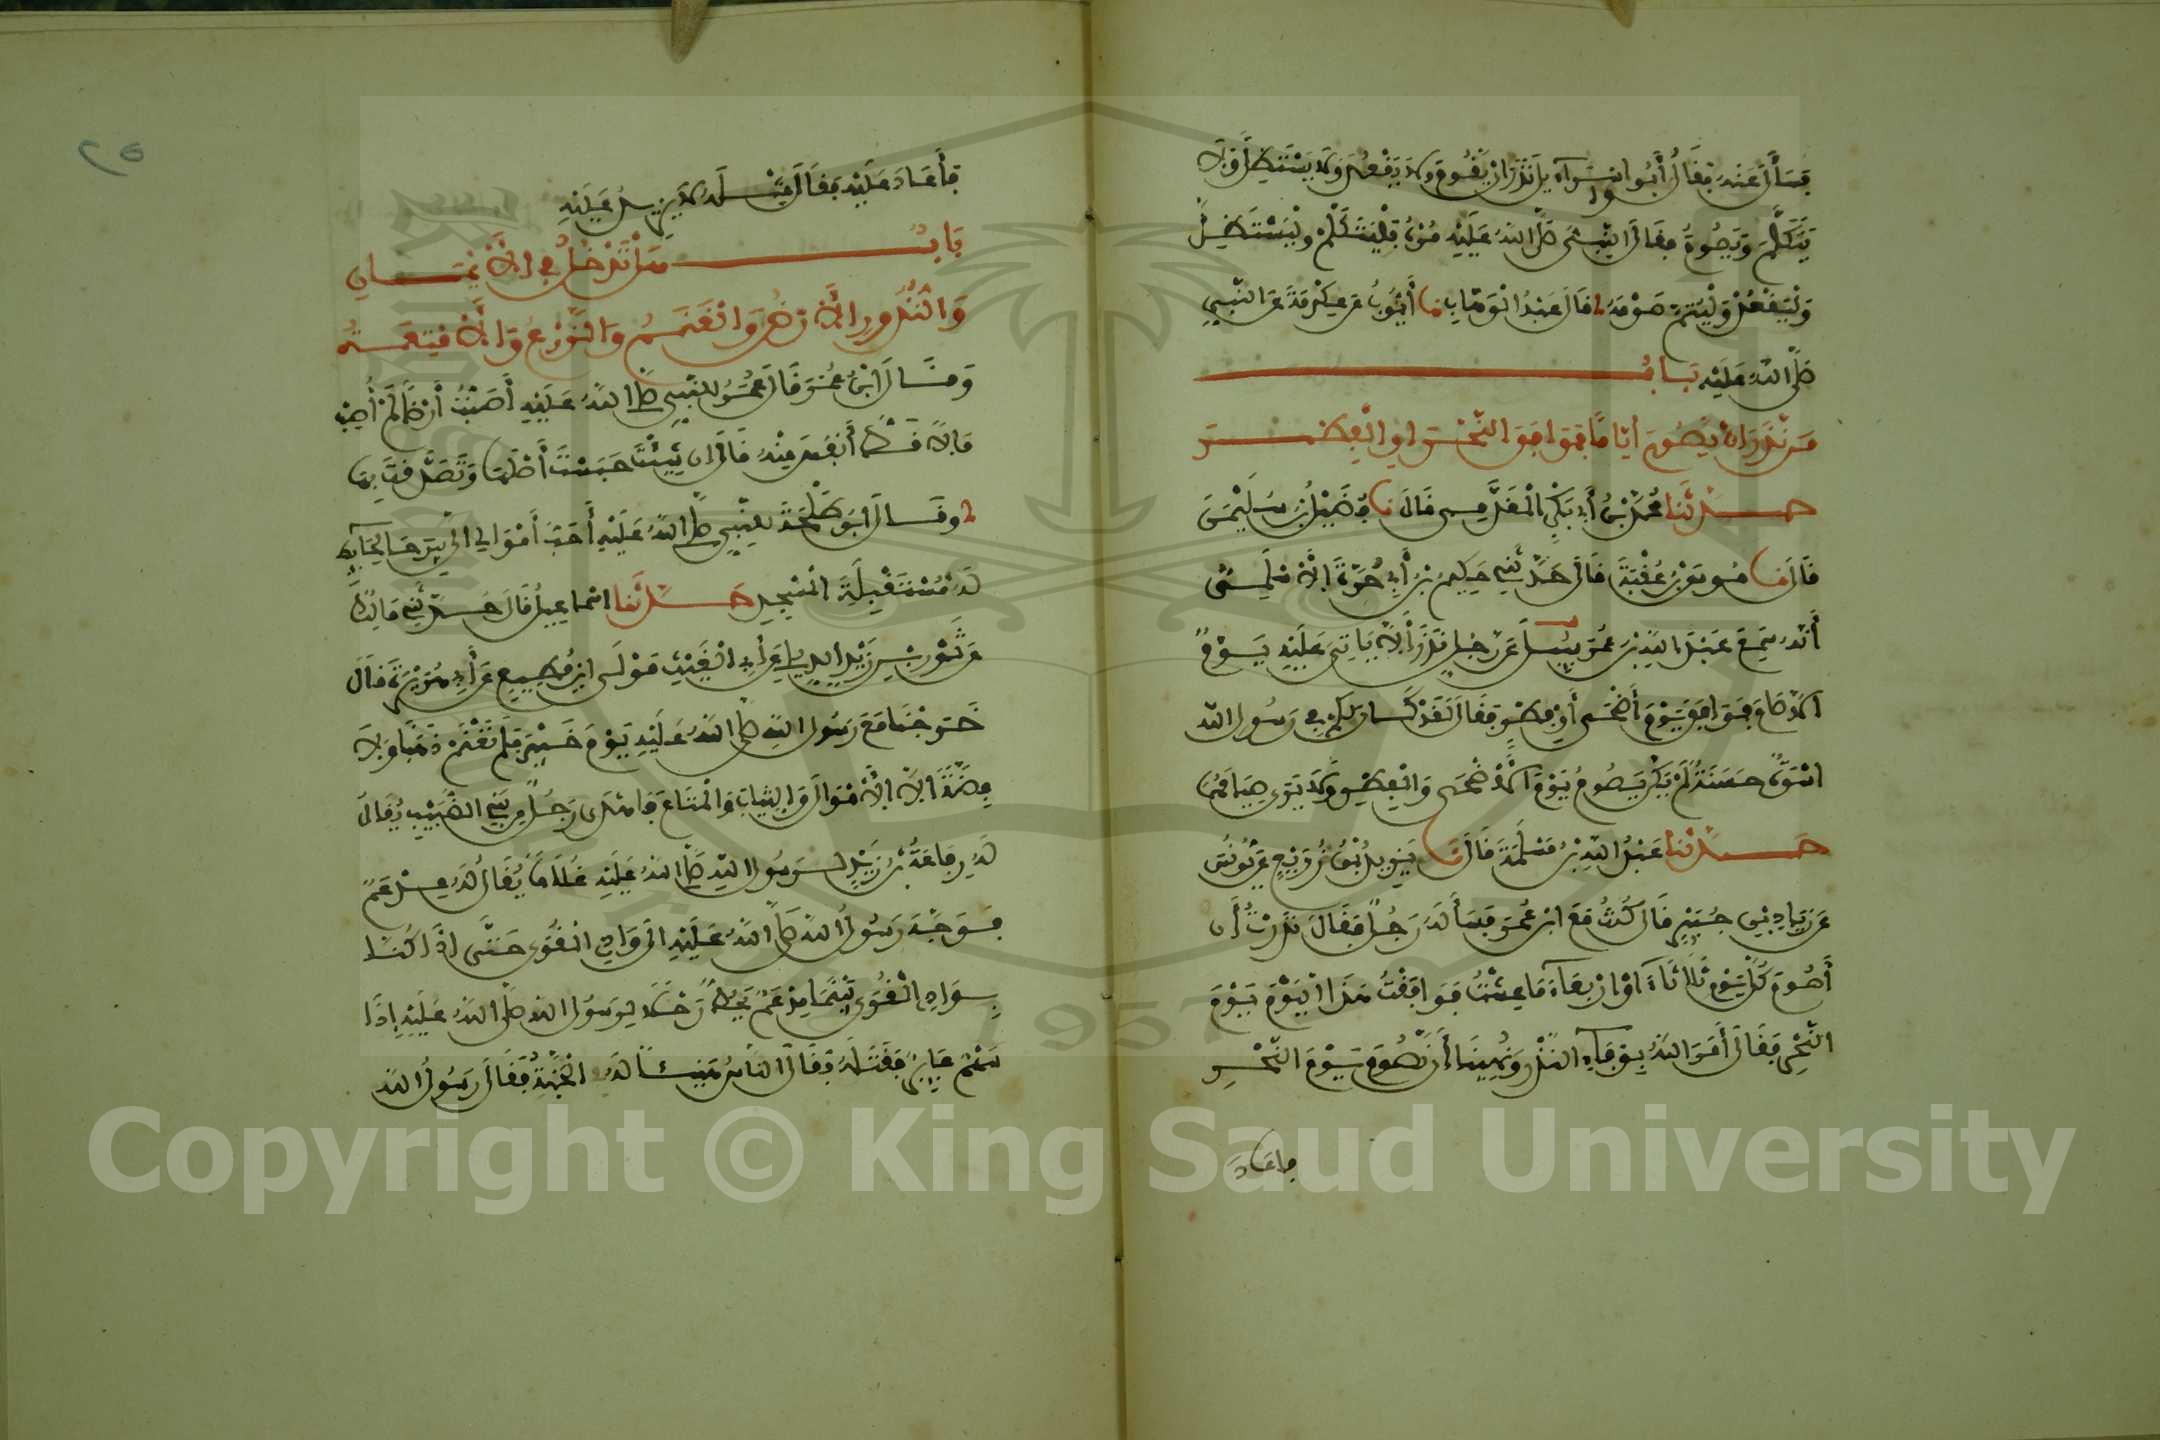 فسأل عنه فقال أبوا اسرآءيل نذر ان يقوم ولا يقعد ولا يستظل ولا
يتكلم ويصوم فقال النبي صلى الله عليه مره فليتكلم وليستظل
وليقعد وليتم صومه قال عبد الوهاب نا أيوب عن عكرمة عن النبي
صلى الله عليه باب
من نذر ان يصوم أياما فوافق النحر او الفطر
حدثنا محمد بن أبي بكر المقدمي قال نا فضيل بن سليمن
قال نا موسى بن عقبة قال حدثني حكيم بن أبي حرة الأسلمي
أنه سمع عبد الله بن عمر يسل عن رجل نذر ألا ياتي عليه يوم
الا صام فوافق يوم أضحى أو فطر فقال لقد كان لكم في رسول الله
اسوة حسنة لم يكن يصوم يوم الأضحى والفطر ولا يرى صيامهما
حدثنا عبد الله بن مسلمة قال نا يزيد بن زريع عن يونس
عن زياد بن جبير قال كنت مع ابن عمر فسأله رجل فقال نذرت أن
أصوم كل يوم ثلاثاء او اربعاء ما عشت فوافقت هذا اليوم يوم
النحر فقال أمر الله بوفاء النذر ونهينا أن نصوم يوم النحر
فاعاد
فأعاد عليه فقال مثله لا يزيد عليه
باب هل تدخل في الأيمان
والنذور الأرض والغنم والزرع والأمتعة
وقال ابن عمر قال عمر للنبي صلى الله عليه أصبت أرضا لم أصب
مالا قط أنفس منه قال ان شئت حبست أصلها وتصدقت بها
وقال ابو طلحة للنبي صلى الله عليه أحب أموالي الي بيرحا لحايط
له مستقبلة المسجد حدثنا اسماعيل قال حدثني مالك
عن ثور بن زيد الديلي عن أبي الغيث مولى ابن مطيع عن أبي هريرة قال
خرجنا مع رسول الله صلى الله عليه يوم خيبر فلم نغنم ذهبا ولا
فضة الا الأموال والثياب والمتاع فاهدى رجل من بني الضبيب يقال
له رفاعة بن زيد لرسول الله صلى الله عليه غلاما يقال له مدعم
فوجه رسول الله صلى الله عليه الى وادي القرى حتى اذا كنا
بوادي القرى بينما مدعم يحط رحلا لرسول الله صلى الله عليه إذا
سهم عاير فقتله فقال الناس هنيئا له الجنة فقال رسول الله